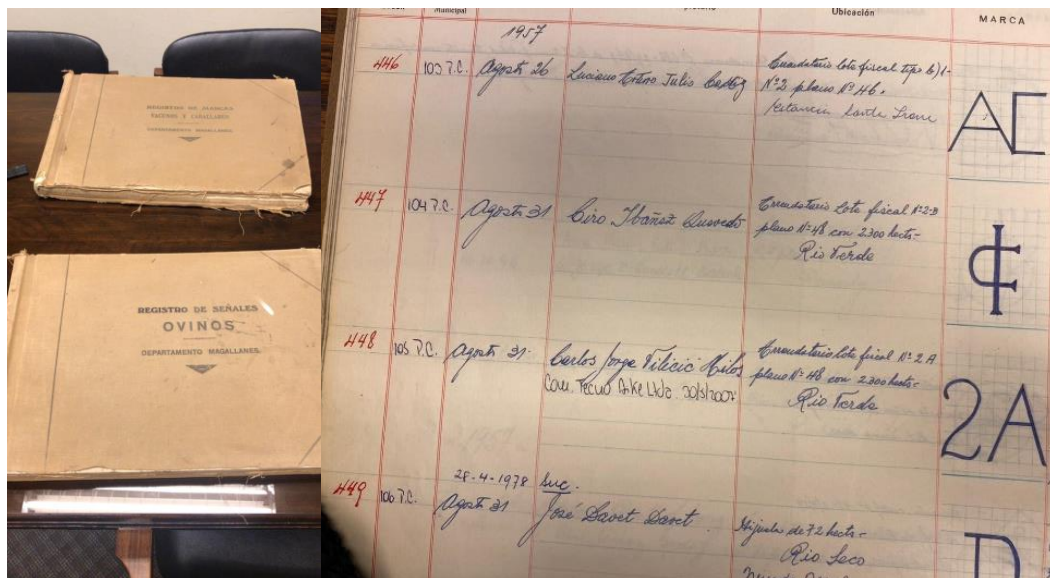 REGISTRO DE MARCAS
VACUNOS Y CABALLARES
DEPARTAMENTO MAGALLANES.
REGISTRO DE SEÑALES
OVINOS
DEPARTAMENTO MAGALLANES.
Municipal
Ubicación
MARCA
1957
446 103 T.C. Agosto 26 Luciano Julio
Arrendatario lote fiscal tipo b)1-
Nº2 plano Nº 46.
AC
447 104 T.C. Agosto 31 Ciro Ibañez Quevedo
Arrendatario Lote fiscal Nº2-B
plano Nº 48 con 2300 hects-
Rio Verde
448 105 T.C. Agosto 31- Carlos Jorge Vilicic Milos
Com. Tecno Arke Ltda. 30/5/2007
Arrendatario lote fiscal Nº 2 A
plano Nº 48 con 2300 hects-
Rio Verde
2A
28-4-1978 Suc.
449 106 T.C. Agosto 31 José Davet Davet.
Hijuela de 72 hects-
Rio Seco